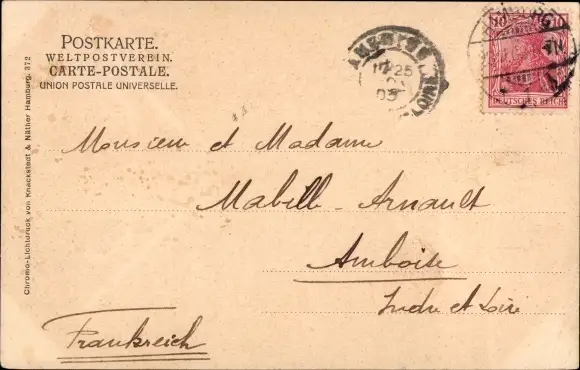 POSTKARTE.
WELTPOSTVEREIN.
CARTE-POSTALE.
UNION POSTALE UNIVERSELLE.
Chromo-Lichtdruck von Knackstedt & Näther Hamburg. 372
10 10
DEUTSCHES REICH
Monsieur et Madame
Mabille-Arnault
Amboise
Indre et Loire
Frankreich